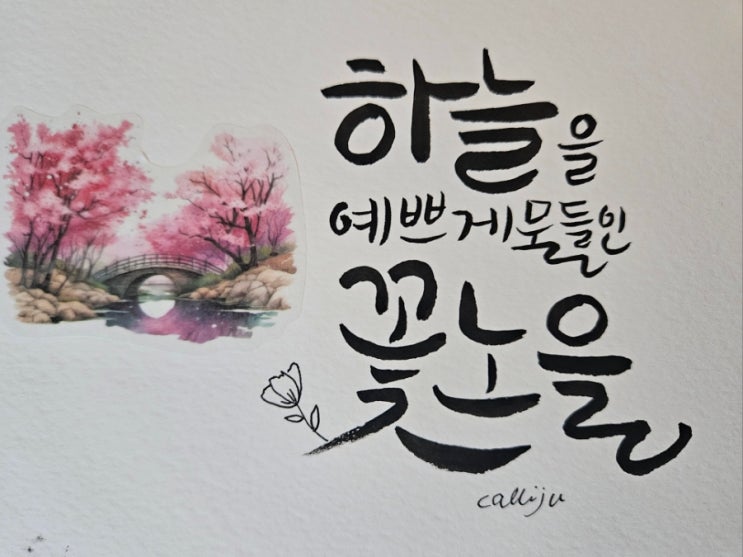 하늘을
예쁘게 물들인
꽃노을
calliju